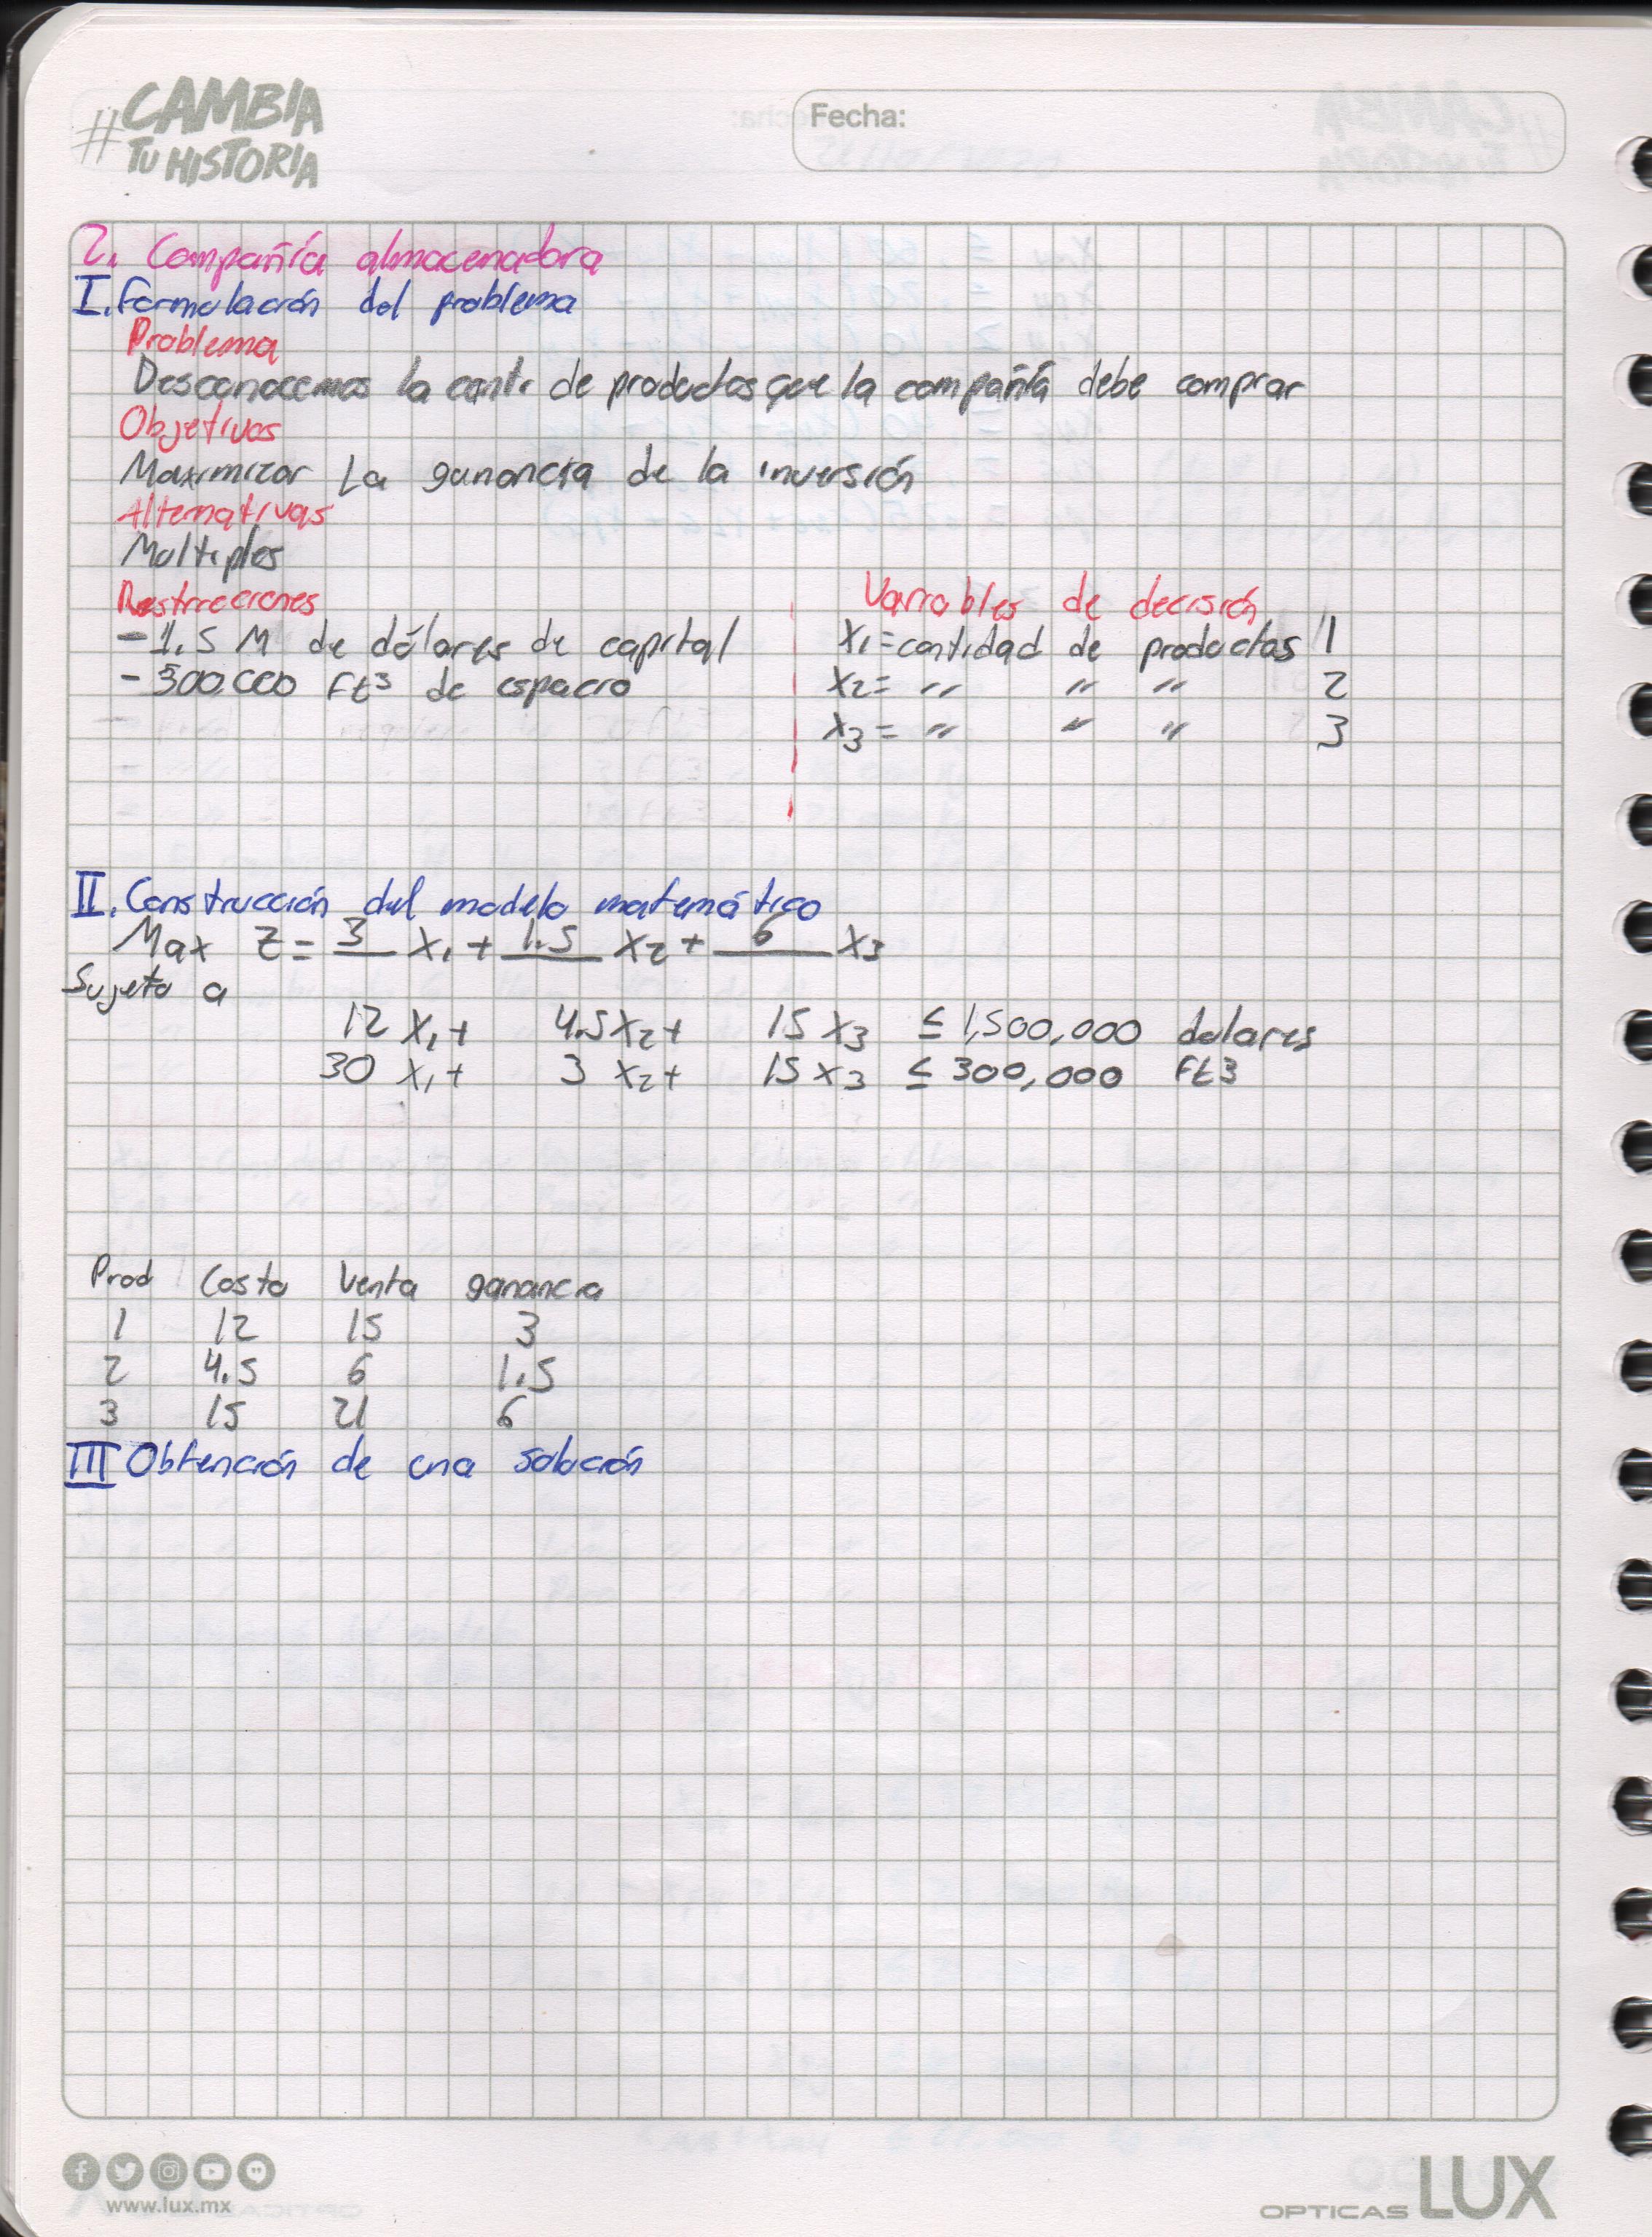 #CAMBIA
TU HISTORIA
Fecha:
2. Compañía almacenadora
I. Formulación del problema
Problema
Desconocemos la cant. de productos que la compañía debe comprar
Objetivos
Maximizar La ganancia de la inversión
Alternativas
Multiples
Restricciones
- 1.5 M de dólares de capital
- 300.000 Ft3 de espacio
Variables de decisión
X1 = cantidad de productos 1
X2 = " " " 2
X3 = " " " 3
II. Construcción del modelo matemático
Max Z = 3 X1 + 1.5 X2 + 6 X3
Sujeto a
12 X1 + 4.5 X2 + 15 X3 ≤ 1,500,000 dolares
30 X1 + 3 X2 + 15 X3 ≤ 300,000 Ft3
Prod Costo Venta ganancia
1 12 15 3
2 4.5 6 1.5
3 15 21 6
III Obtención de una solución
www.lux.mx
OPTICAS LUX